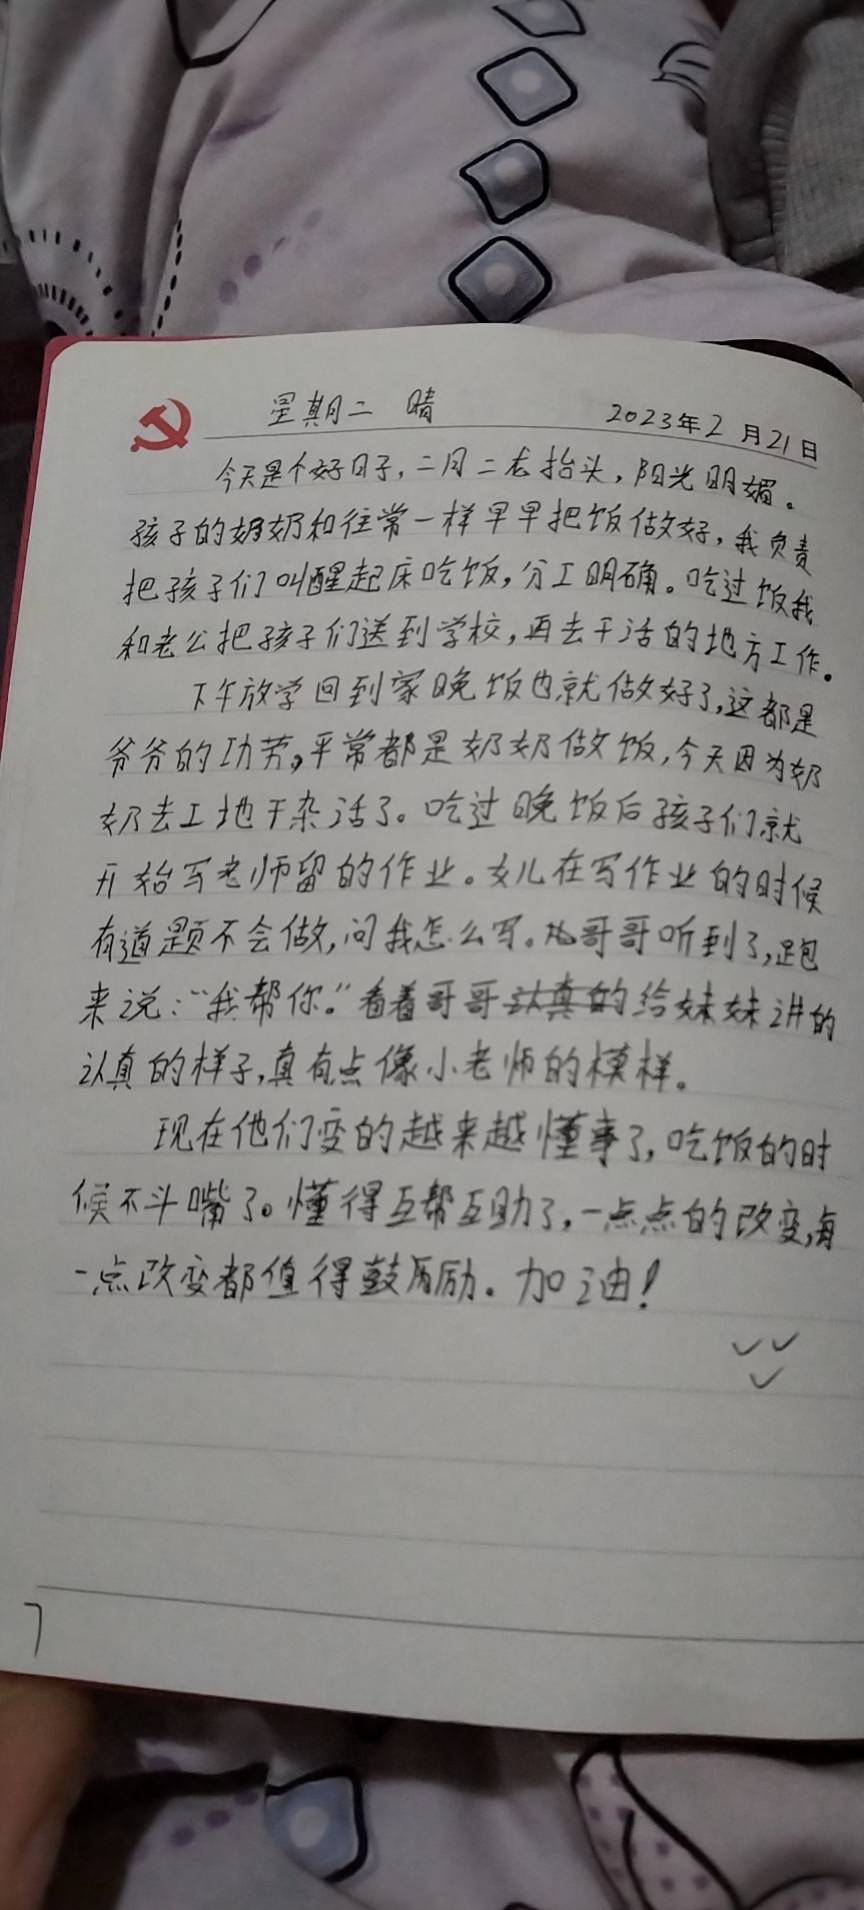 星期二 晴 2023年2月21日
今天是个好日子，二月二龙抬头，阳光明媚。
孩子的奶奶和往常一样早早把饭做好，我负责
把孩子们叫醒起床吃饭，分工明确。吃过饭我
和老公把孩子们送到学校，再去干活的地方工作。
下午放学回到家晚饭也就做好了，这都是
爷爷的功劳。平常都是奶奶做饭，今天因为奶
奶去工地干杂活了。吃过晚饭后孩子们就
开始写老师留的作业。女儿在写作业的时候
有道题不会做，问我怎么写。哥哥听到了，跑
来说：“我帮你。”看着哥哥认真的给妹妹讲的
认真的样子，真有点像小老师的模样。
现在他们变的越来越懂事了，吃饭的时
候不斗嘴了。懂得互帮互助了，一点点的改变，每
一点改变都值得鼓历励。加油！
7